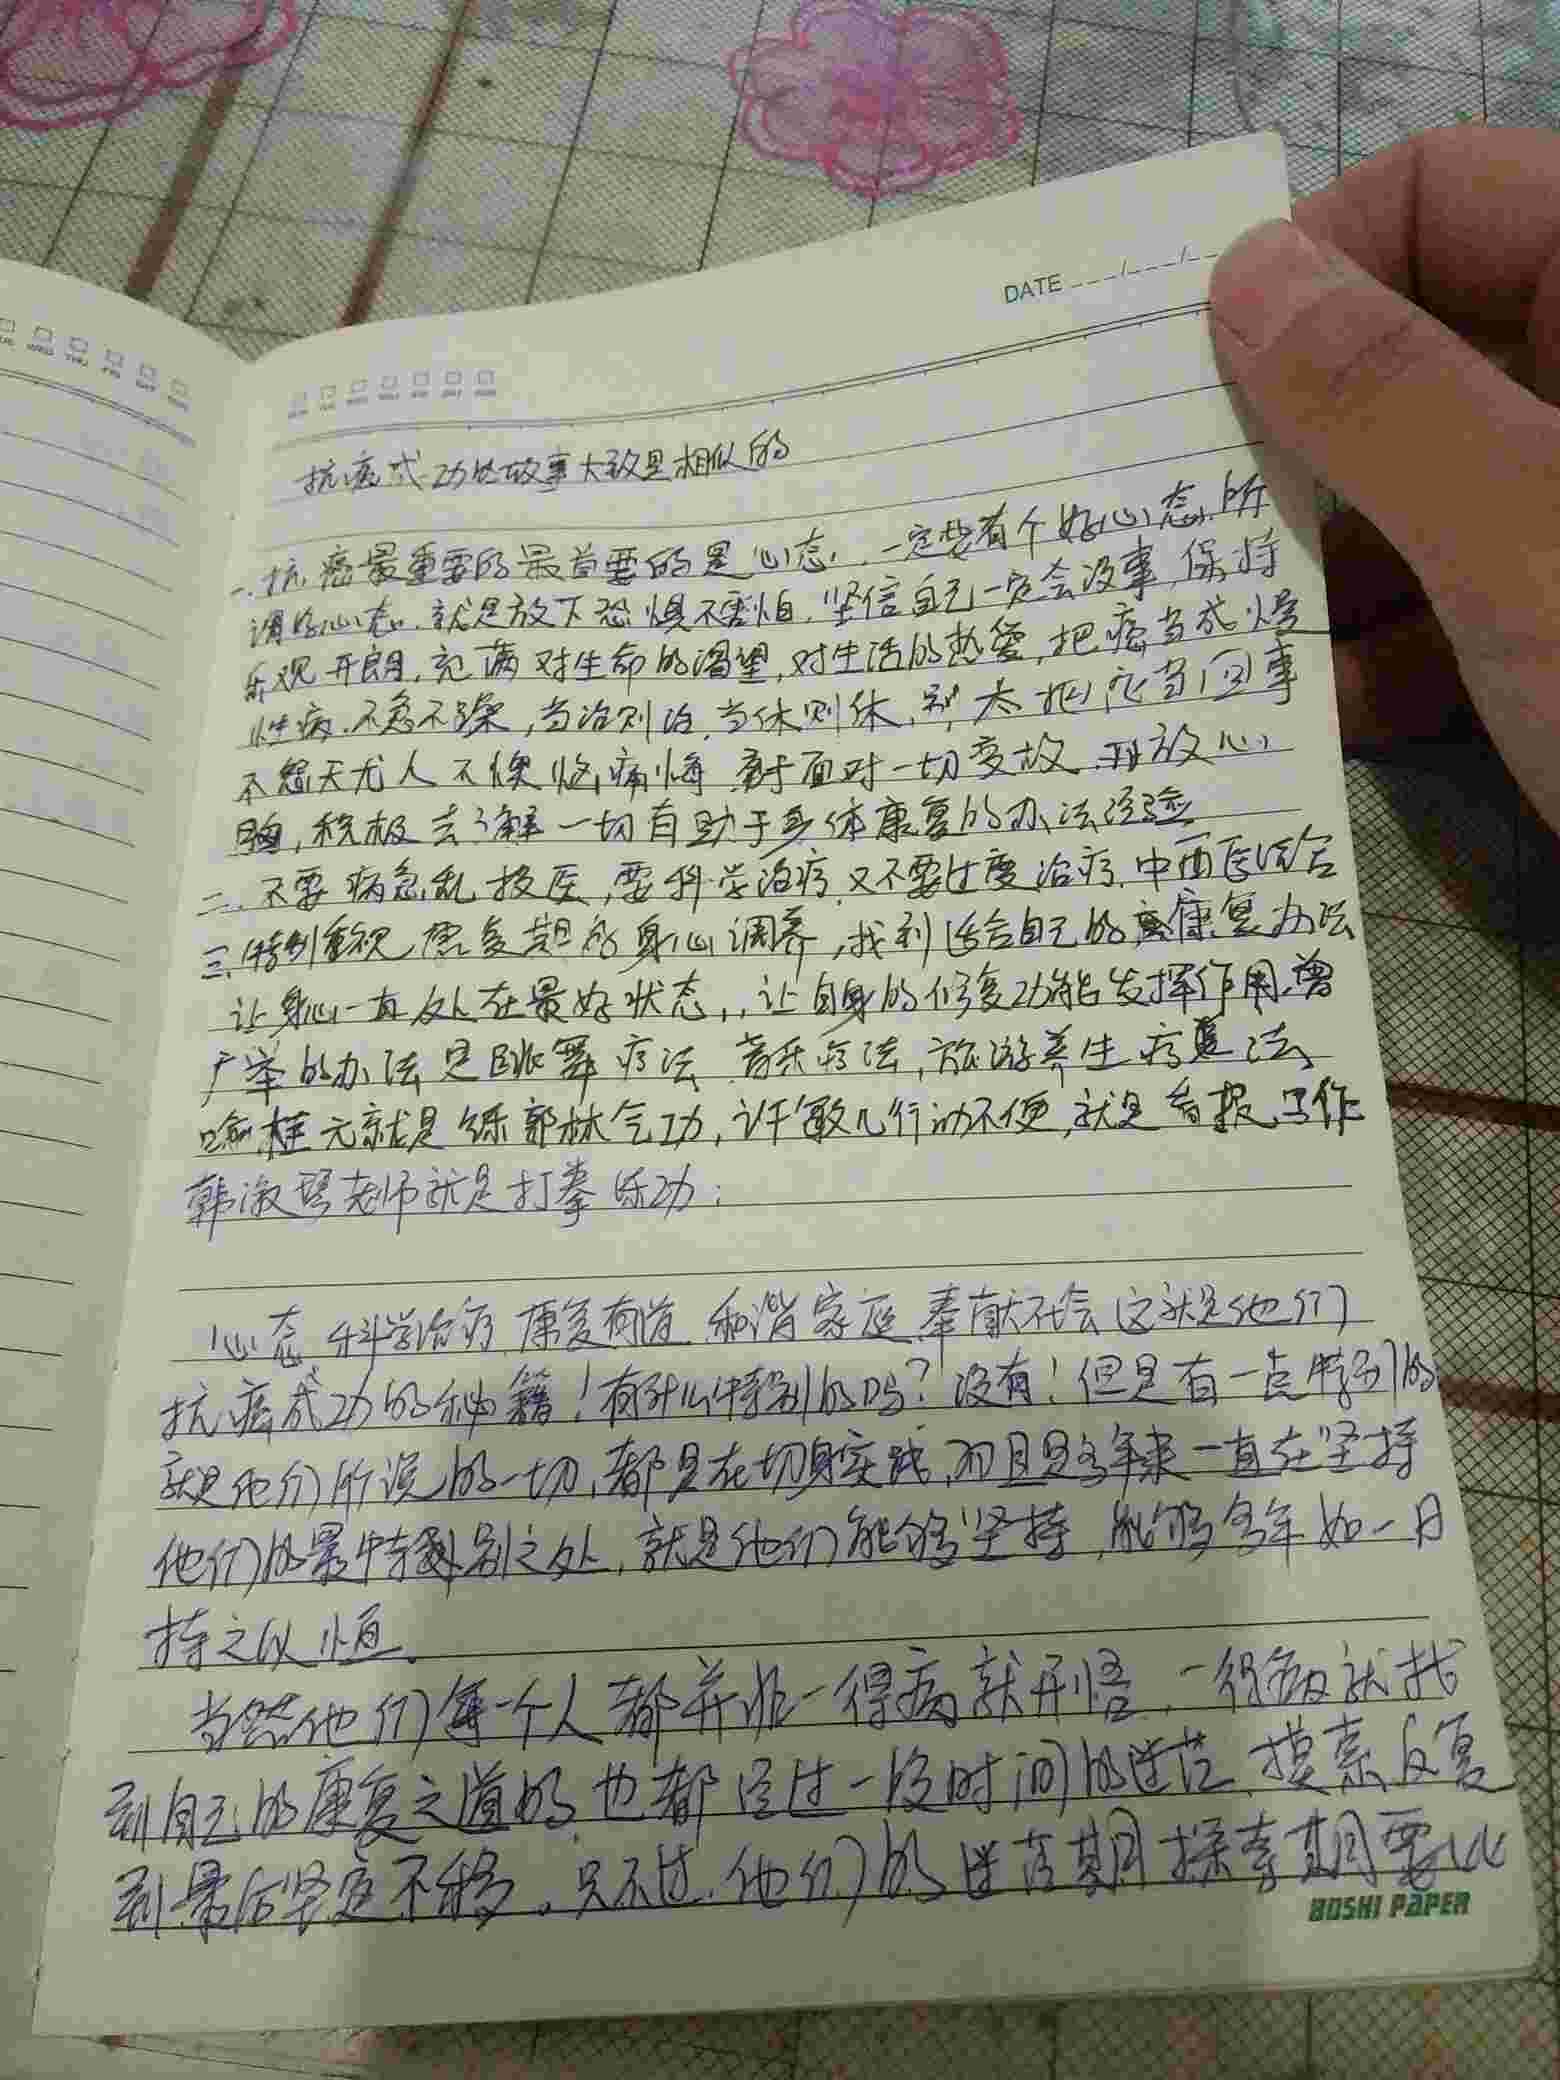 DATE
抗癌成功的故事大致是相似的
一、抗癌最重要的最首要的是心态，一定要有个好心态，所
谓好心态，就是放下恐惧不害怕，坚信自己一定会没事，保持
乐观开朗，充满对生命的渴望，对生活的热爱，把癌当成慢
性病，不急不躁，当治则治，当休则休，别太把它当回事
不怨天尤人不懊恼痛悔 面对一切变故，放心
胸，积极去了解一切有助于身体康复的办法经验
二、不要病急乱投医，要科学治疗，又不要过度治疗，中西医结合
三、特别重视康复期的身心调养，找到适合自己的康复办法
让身心一直处在最好状态，，让自身的修复功能发挥作用，曾
广举的办法是跳舞疗法，音乐疗法，旅游养生疗法，
喻桂元就是练郭林气功，许敏几行动不便，就是看报写作
韩淑琴老师就是打拳练功；
心态 科学治疗 康复有道 和谐家庭 奉献社会 这就是他们
抗癌成功的秘籍！有什么特别的吗？没有！但是有一点特别的
就是他们所说的一切，都是在切身实践，而且是多年来一直在坚持
他们的最特别之处，就是他们能够坚持，能够多年如一日
持之以恒。
当然他们每一个人都并非一得病就开悟，一得病就找
到自己的康复之道的，也都经过一段时间的迷茫，摸索，反复
到最后坚定不移。只不过，他们的迷茫期探索期要比
BOSHI PAPER